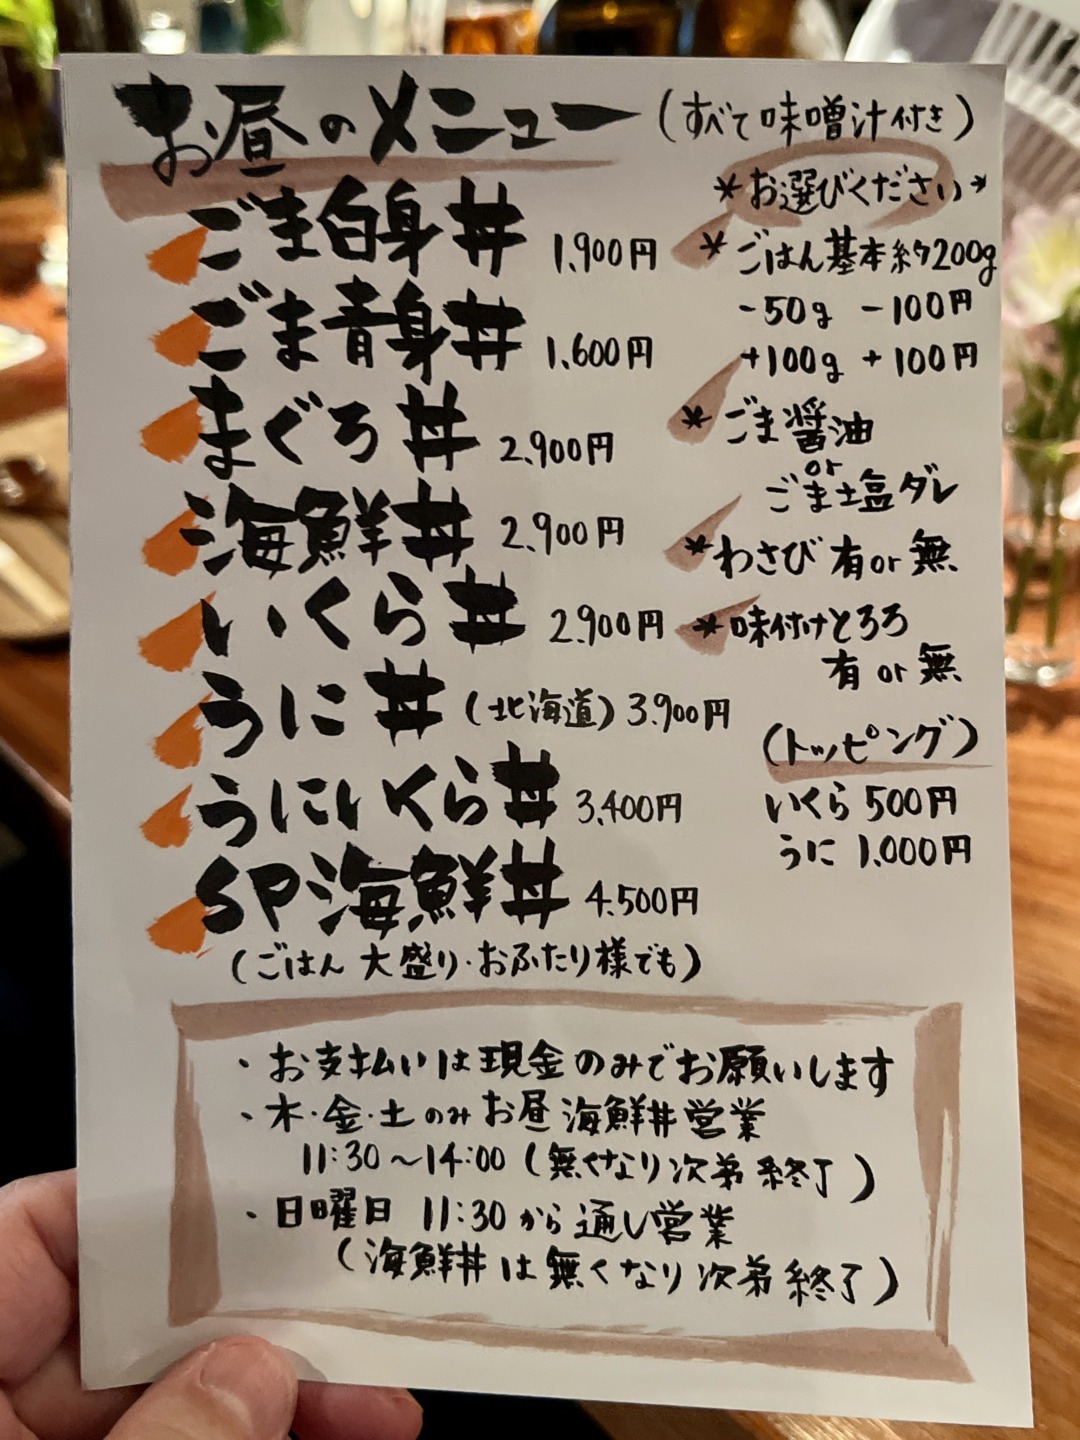 お昼のメニュー (すべて味噌汁付き)
ごま白身丼 1,900円
ごま青身丼 1,600円
まぐろ丼 2,900円
海鮮丼 2,900円
いくら丼 2,900円
うに丼 (北海道) 3,900円
うにいくら丼 3,400円
SP海鮮丼 4,500円
(ごはん 大盛り・おふたり様でも)
*お選びください*
*ごはん基本約200g
-50g -100円
+100g +100円
*ごま醤油
or
ごま塩ダレ
*わさび 有or無
*味付けとろろ
有 or 無
(トッピング)
いくら 500円
うに 1,000円
・お支払いは現金のみでお願いします
・木・金・土のみお昼海鮮丼営業
11:30～14:00 (無くなり次第終了)
・日曜日 11:30から通し営業
(海鮮丼は無くなり次第終了)